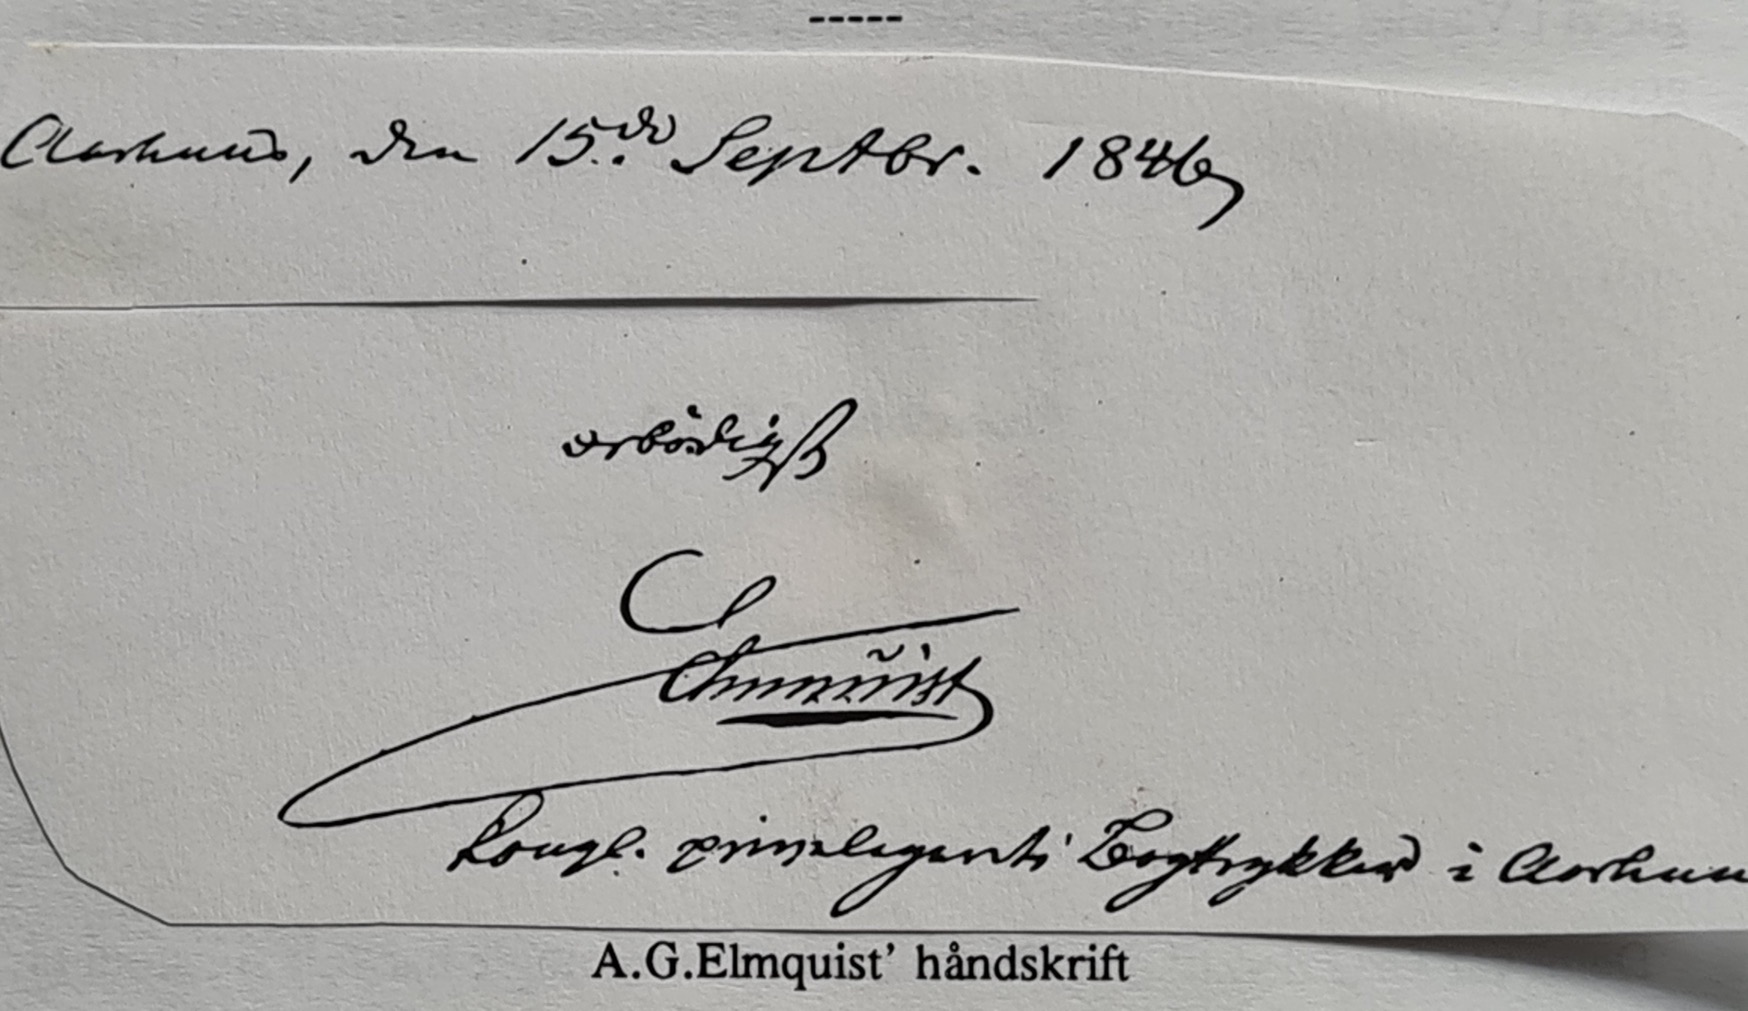 -----
Aarhuus, den 15.de Septbr. 1846,
ærbödigst
Elmquist
Kongl. privilegerede Bogtrykker i Aarhuu
A.G.Elmquist' håndskrift